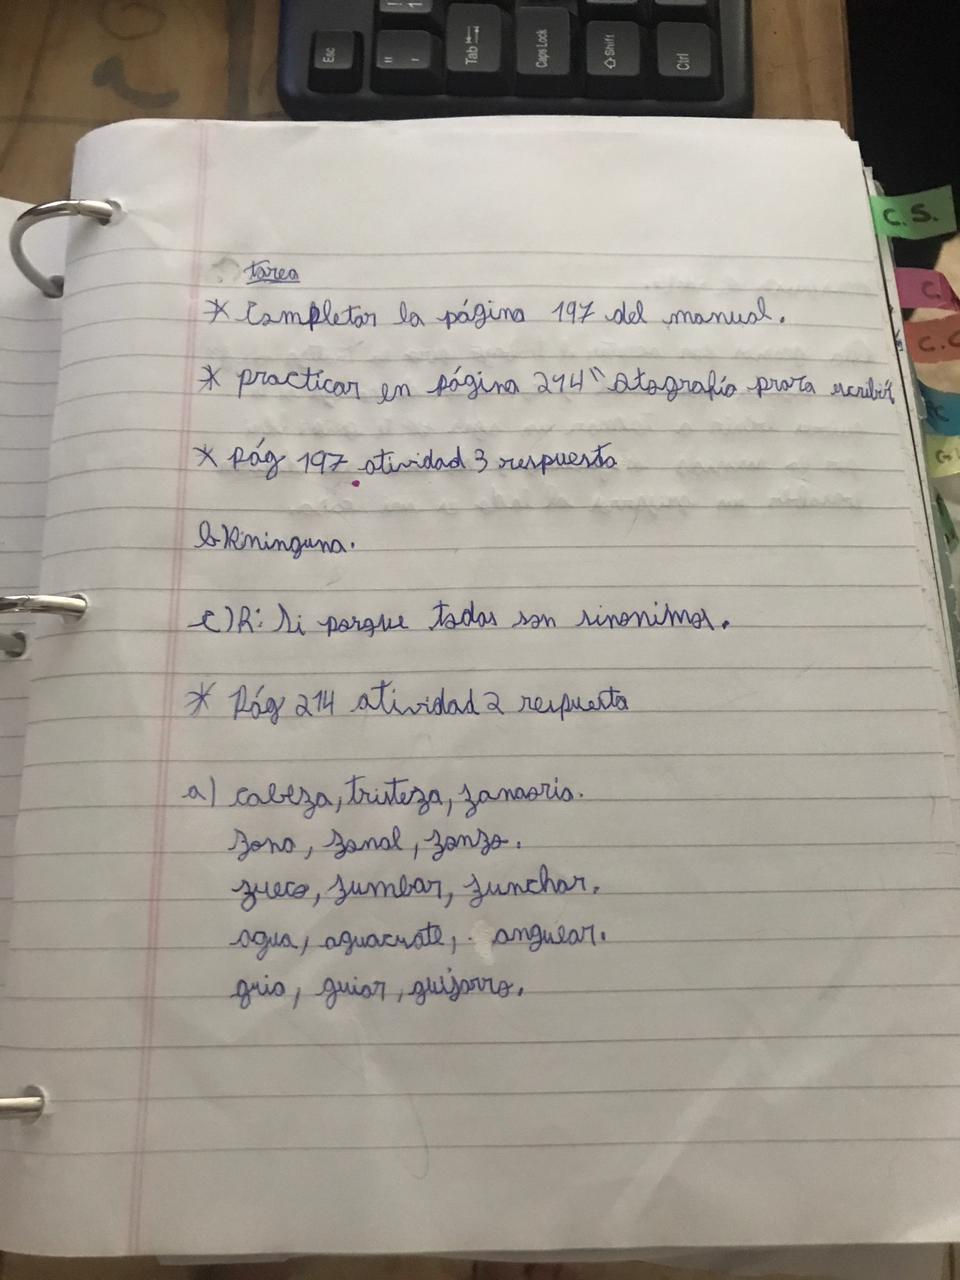 Esc
Tab
Caps Lock
Shift
Ctrl
C.S.
tarea
* Completar la página 197 del manual.
* practicar en página 214 " otografía prara escribir
* pág 197 atividad 3 respuesta
b-R ninguna.
c) R: Si porque todas son sinonimos.
* Pág 214 atividad 2 respuesta
a) cabeza, tristeza, zanaoria.
zona, zonal, zonzo.
zueco, zumbar, zunchar.
agua, aguacate, anguear.
guia, guiar, guijarro.